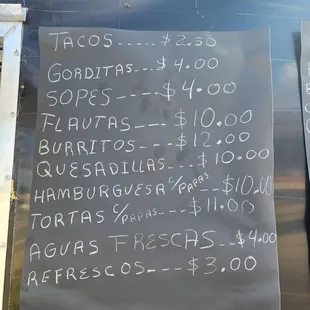 TACOS.....$2.50
GORDITAS...$4.00
SOPES----$4.00
FLAUTAS---$10.00
BURRITOS---$12.00
QUESADILLAS...$10.00
HAMBURGUESA C/PAPAS $10.00
TORTAS C/PAPAS---$11.00
AGUAS FRESCAS..$4.00
REFRESCOS---$3.00